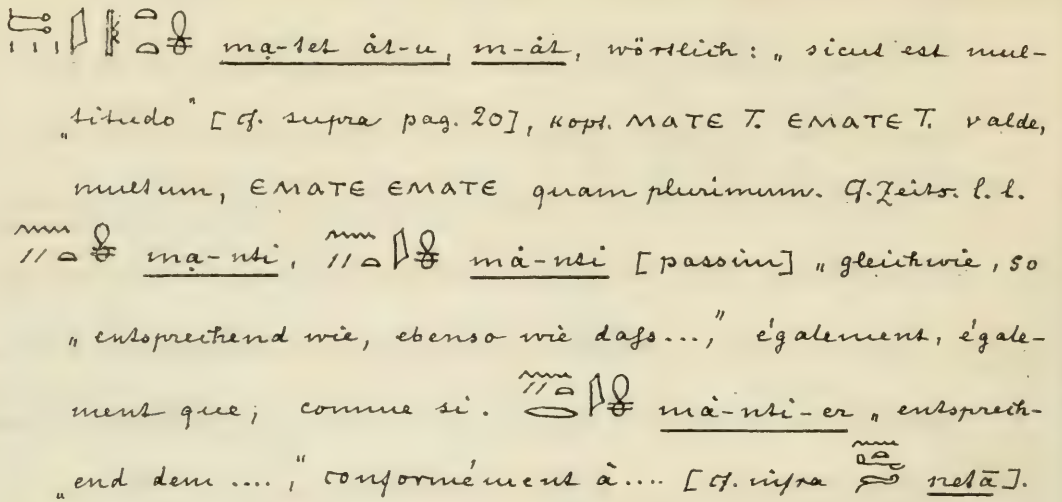 mạ-tet ȧt-u, m-ȧt, wörtlich: „ sicut est mul-
„titudo" [cf. supra pag. 20], kopt. ⲙⲁⲧⲉ T. ⲉⲙⲁⲧⲉ T. valde,
multum, ⲉⲙⲁⲧⲉ ⲉⲙⲁⲧⲉ quam plurimum. Cf. Zeits. l. l.
mạ-nti, mȧ-nti [passim] „ gleichwie, so
„ entsprechend wie, ebenso wie daſs...," également, égale-
ment que, comme si. mȧ-nti-er „ entsprech-
„end dem ....," conformément à.... [cf. infra netā].